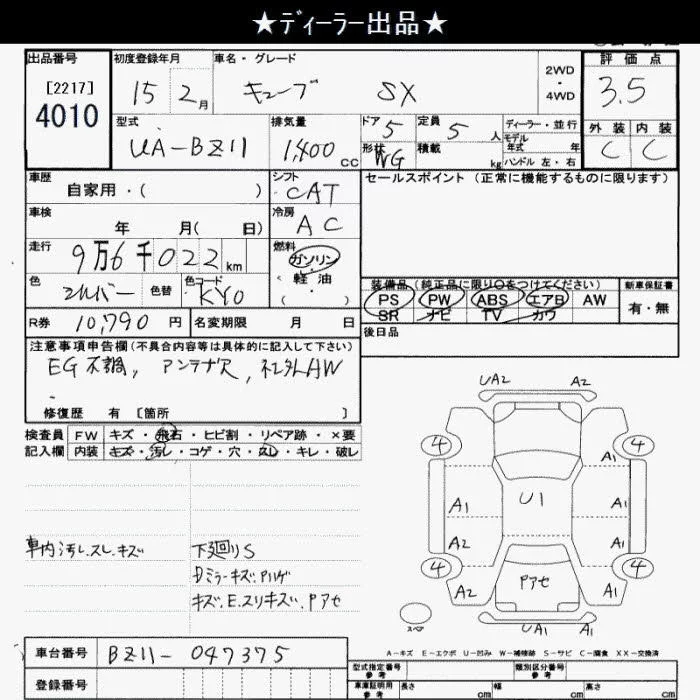 ★ディーラー出品★
出品番号 初度登録年月 車名・グレード 2WD・4WD 評価点
[2217] 4010 15 2月 キューブ SX 3.5
型式 排気量 ドア 5 定員 5人 ディーラー・並行 外装 内装
UA-BZ11 1,400cc 形状 WG 積載 kg モデル年式 年 ハンドル 左・右 C C
車歴 自家用・( ) シフト CAT セールスポイント (正常に機能するものに限ります)
車検 年 月(日) 冷房 AC
走行 9万6千022km 燃料 ガソリン
軽油
・
( )
色 シルバー 色替 色コード KY0 装備品 (純正品に限り○をつけてください) 新車保証書
PS PW ABS エアB AW 有・無
SR ナビ TV カワ
R券 10,790円 名変期限 月 日 後日品
注意事項申告欄 (不具合内容等は具体的に記入して下さい)
EG不調, アンテナ穴, 社外AW
修復歴 有 [箇所 ]
検査員 FW キズ・飛石・ヒビ割・リペア跡・×要
記入欄 内装 キズ・汚レ・コゲ・穴・スレ・キレ・破レ
UA2 A2
4 4
A1
A1 U1 A1
A2 A1
4 4
A2 Pアセ A2
スペア UA1 A1
車内汚レ.スレ.キズ 下廻りS
Dミラーキズ.Pハゲ
キズ.E.スリキズ.Pアセ
A-キズ E-エクボ U-凹み W-補修跡 S-サビ C-腐食 XX-交換済
車台番号 BZ11-047375
登録番号
型式指定番号 参考 類別区分番号 参考
車庫証明用 参考 長さ cm 幅 cm 高さ cm